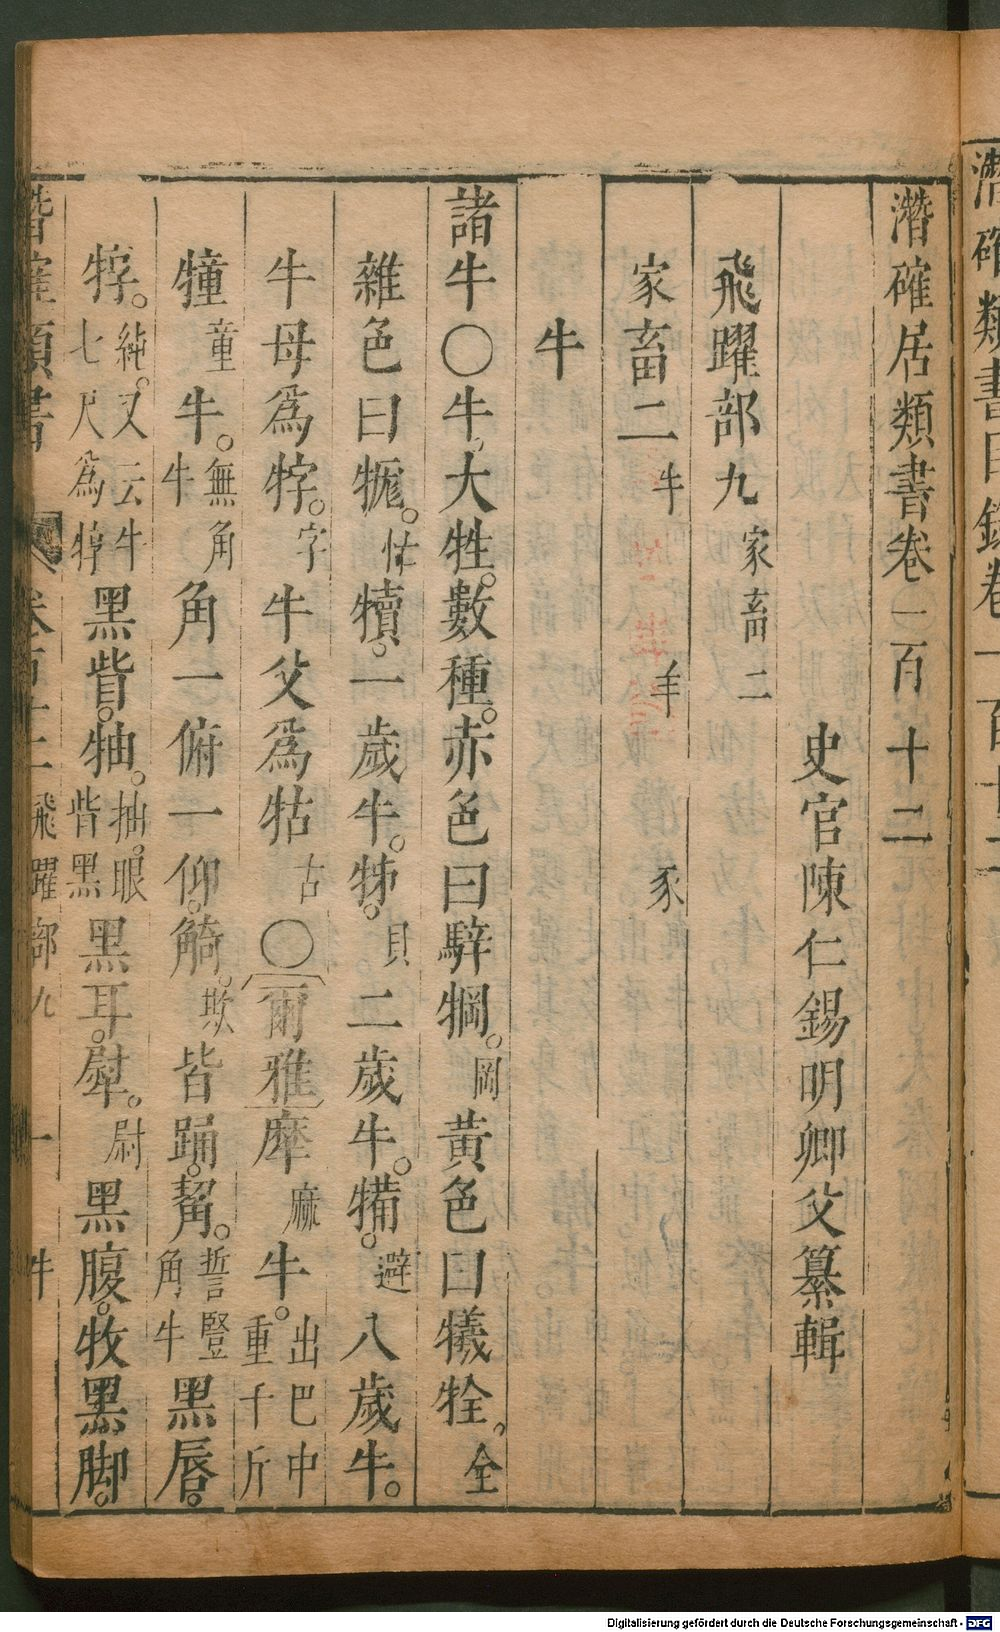 潛確居類書卷一百十二
史官陳仁錫明卿父纂輯
飛躍部九 家畜二
家畜二 牛 羊 豕
牛
諸牛〇牛大牲數種赤色曰騂犅岡黃色曰犧牷全
雜色曰牻㹀一歲牛㸬貝二歲牛犕避八歲牛
牛母為牸字牛父為牯古〇爾雅犘麻牛出巴中重千斤
犝童牛無角牛角一俯一仰觭欺皆踊觢誓豎角牛黑唇
犉純又云牛七尺為犉黑眥牰抽眼眥黑黑耳犚尉黑腹牧黑脚
飛躍部九 一 牛
Digitalisierung gefördert durch die Deutsche Forschungsgemeinschaft - DFG